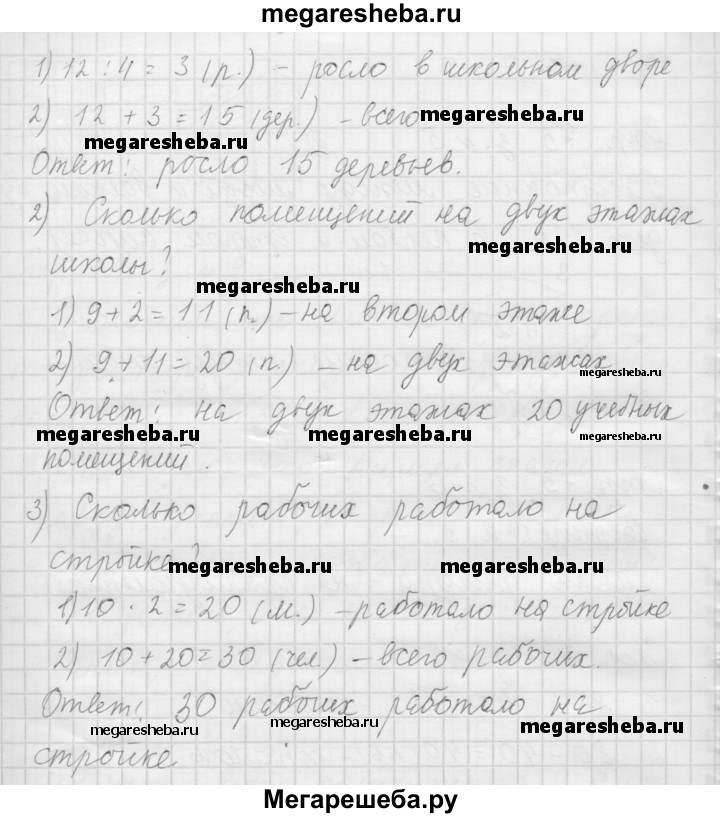 megaresheba.ru
1) 12 : 4 = 3 (р.) – росло в школьном дворе
2) 12 + 3 = 15 (дер.) – всего megaresheba.ru
megaresheba.ru
Ответ: росло 15 деревьев.
2) Сколько помещений на двух этажах
megaresheba.ru
школы?
megaresheba.ru
1) 9 + 2 = 11 (п.) – на втором этаже
2) 9 + 11 = 20 (п.) – на двух этажах
megaresheba.ru
Ответ: на двух этажах 20 учебных
megaresheba.ru megaresheba.ru megaresheba.ru
помещений.
3) Сколько рабочих работало на
стройке? megaresheba.ru megaresheba.ru
1) 10 · 2 = 20 (м.) – работало на стройке
2) 10 + 20 = 30 (чел.) – всего рабочих.
Ответ: 30 рабочих работало на
megaresheba.ru megaresheba.ru megaresheba.ru
стройке
Мегарешеба.ру